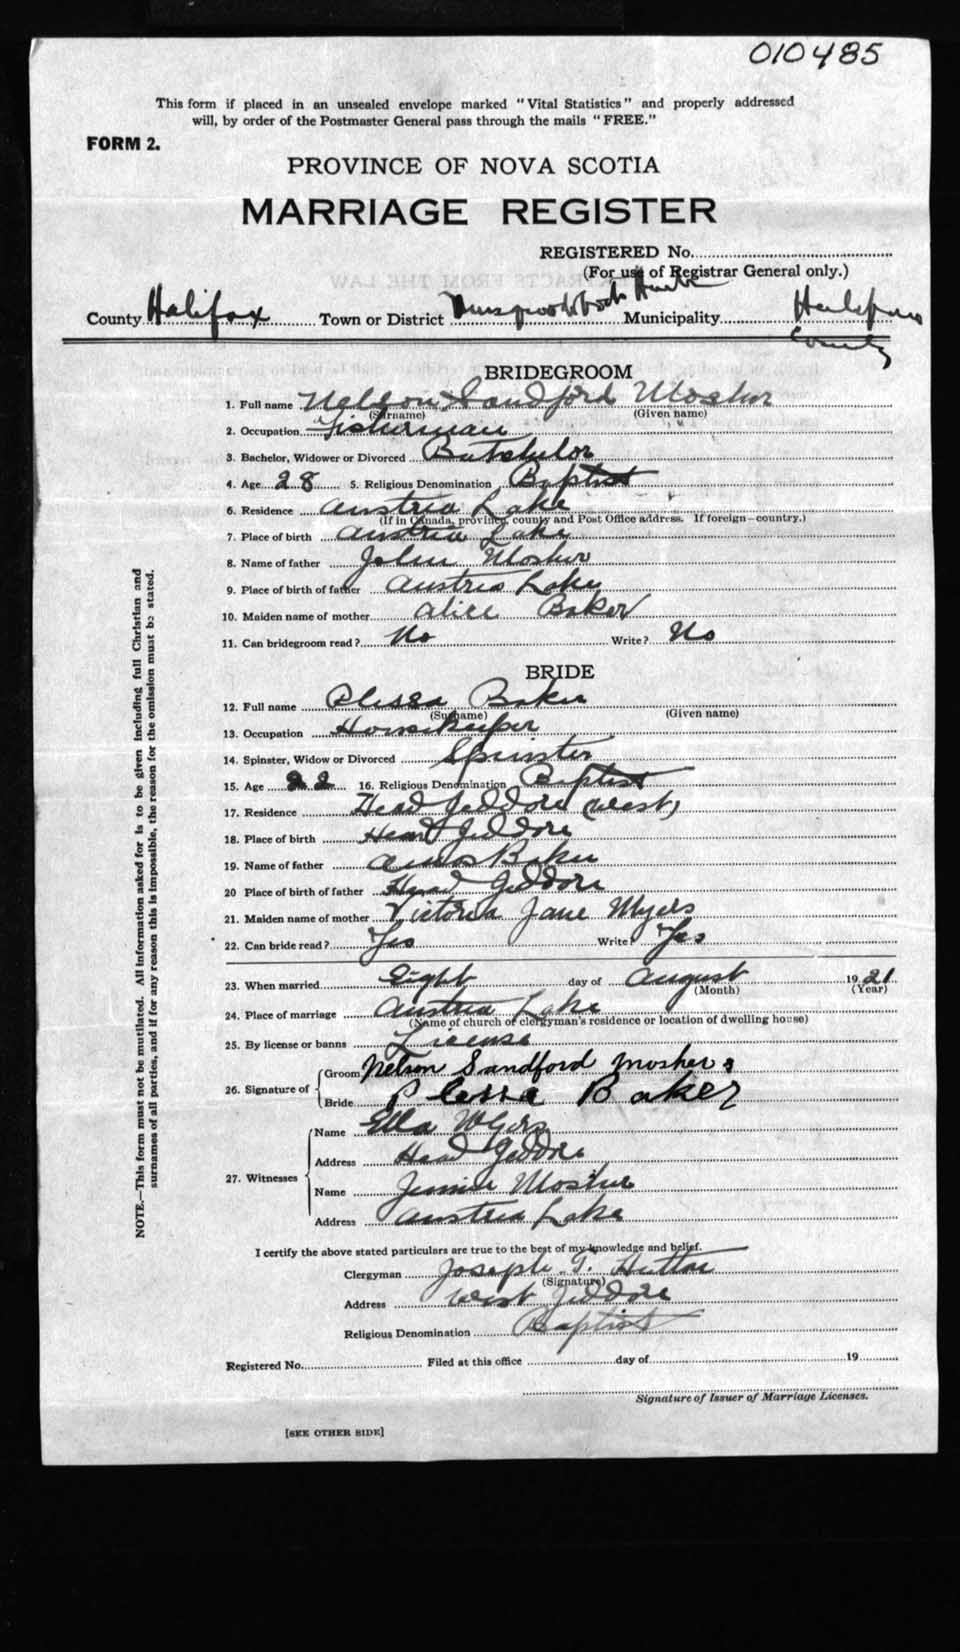 010485
This form if placed in an unsealed envelope marked "Vital Statistics" and properly addressed
will, by order of the Postmaster General pass through the mails "FREE."
FORM 2.
PROVINCE OF NOVA SCOTIA
MARRIAGE REGISTER
REGISTERED No.
(For use of Registrar General only.)
County Halifax Town or District Musquodoboit Harbor Municipality Halifax
County
BRIDEGROOM
1. Full name Nelson Sandford Mosher
(Surname) (Given name)
2. Occupation Fisherman
3. Bachelor, Widower or Divorced Batchelor
4. Age 28 5. Religious Denomination Baptist
6. Residence Austria Lake
(If in Canada, province, county and Post Office address. If foreign—country.)
7. Place of birth Austria Lake
8. Name of father John Mosher
9. Place of birth of father Austria Lake
10. Maiden name of mother Alice Baker
11. Can bridegroom read? No Write? No
BRIDE
12. Full name Plessa Baker
(Surname) (Given name)
13. Occupation Housekeeper
14. Spinster, Widow or Divorced Spinster
15. Age 22 16. Religious Denomination Baptist
17. Residence Head Jeddore (West)
18. Place of birth Head Jeddore
19. Name of father Amos Baker
20 Place of birth of father Head Jeddore
21. Maiden name of mother Victoria Jane Myers
22. Can bride read? Yes Write? Yes
23. When married eight day of August 1921
(Month) (Year)
24. Place of marriage Austria Lake
(Name of church or clergyman's residence or location of dwelling house)
25. By license or banns License
26. Signature of
Groom Nelson Sandford Mosher
Bride Plessa Baker
27. Witnesses
Name Ella Myers
Address Head Jeddore
Name Jennie Mosher
Address Austria Lake
I certify the above stated particulars are true to the best of my knowledge and belief.
Clergyman Joseph T. Hutton
(Signature)
Address West Jeddore
Religious Denomination Baptist
Registered No. Filed at this office day of 19
Signature of Issuer of Marriage Licenses.
[SEE OTHER SIDE]
NOTE.—This form must not be mutilated. All information asked for is to be given including full Christian and
surnames of all parties, and if for any reason this is impossible, the reason for the omission must be stated.